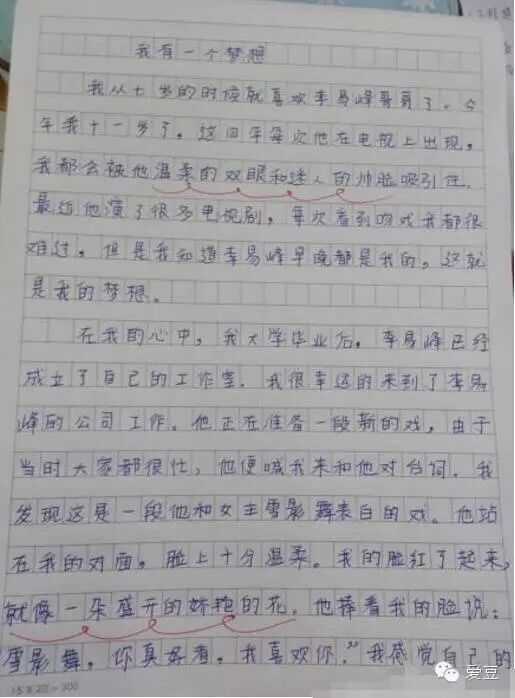 我有一个梦想
我从七岁的时候就喜欢李易峰哥哥了。今
年我十一岁了。这四年每次他在电视上出现,
我都会被他温柔的双眼和迷人的帅脸吸引住.
最近他演了很多电视剧,每次看到吻戏我都很
难过,但是我知道李易峰早晚都是我的,这就
是我的梦想。
在我的心中,我大学毕业后,李易峰已经
成立了自己的工作室.我很幸运的来到了李易
峰的公司工作。他正在准备一段新的戏,由于
当时大家都很忙,他便喊我来和他对台词.我
发现这是一段他和女主雪影舞表白的戏。他站
在我的对面,脸上十分温柔。我的脸红了起来,
就像一朵盛开的娇艳的花.他捧着我的脸说:
“雪影舞,你真好看,我喜欢你.”我感觉自己的
15×20=300
爱豆